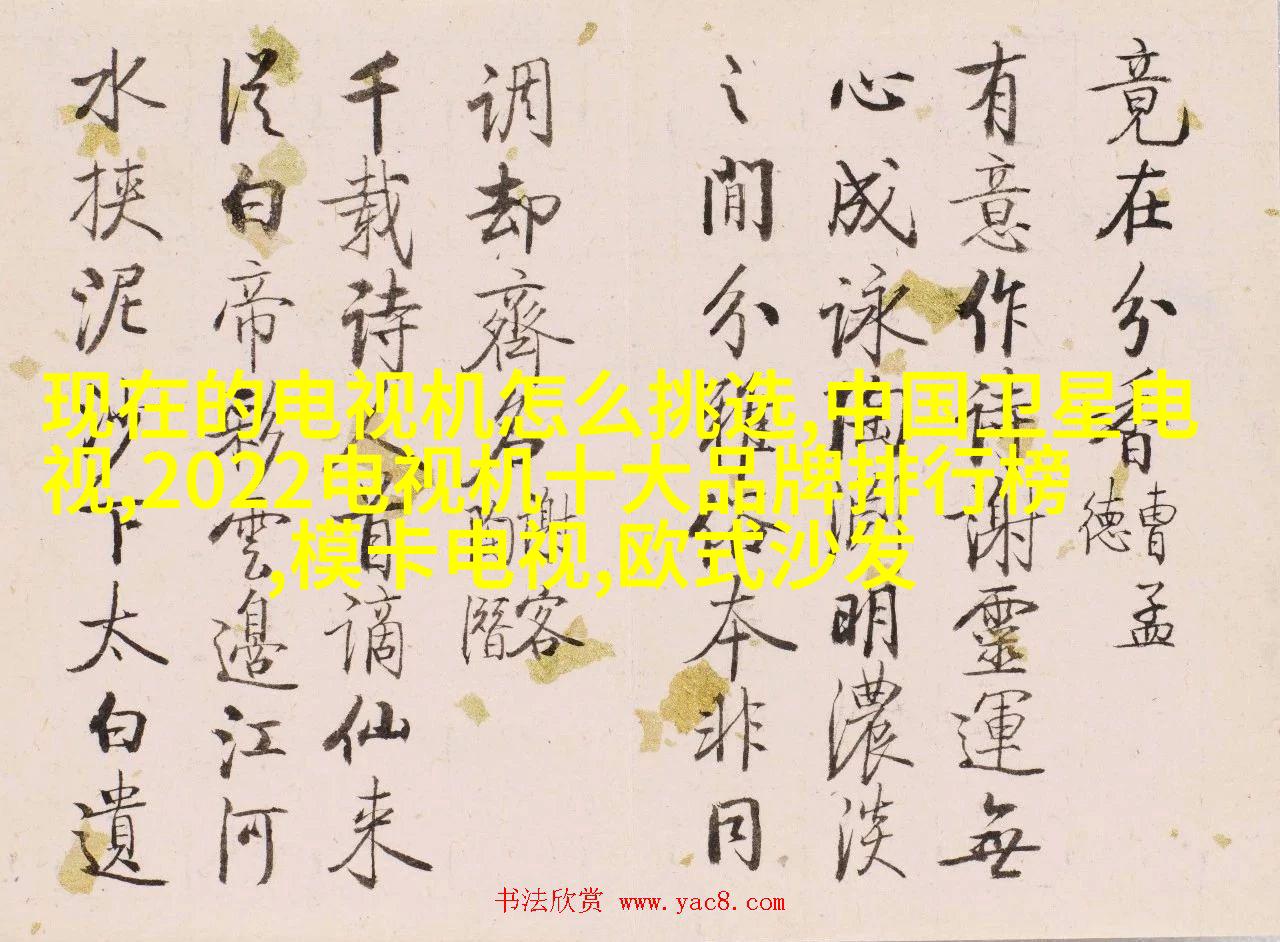 竟在分香
曹孟
德
有意作诗谢靈運無
心成詠陶渊明濃淡
之間分雅俗本非同
调却齊名
謝客
陶潛
千载诗人首谪仙来
從白帝彩雲邊江河
水挟泥沙下太白遺
现在的电视机怎么挑选,中国卫星电
视,2022电视机十大品牌排行榜
,模卡电视,欧式沙发
书法欣赏 www.yac8.com